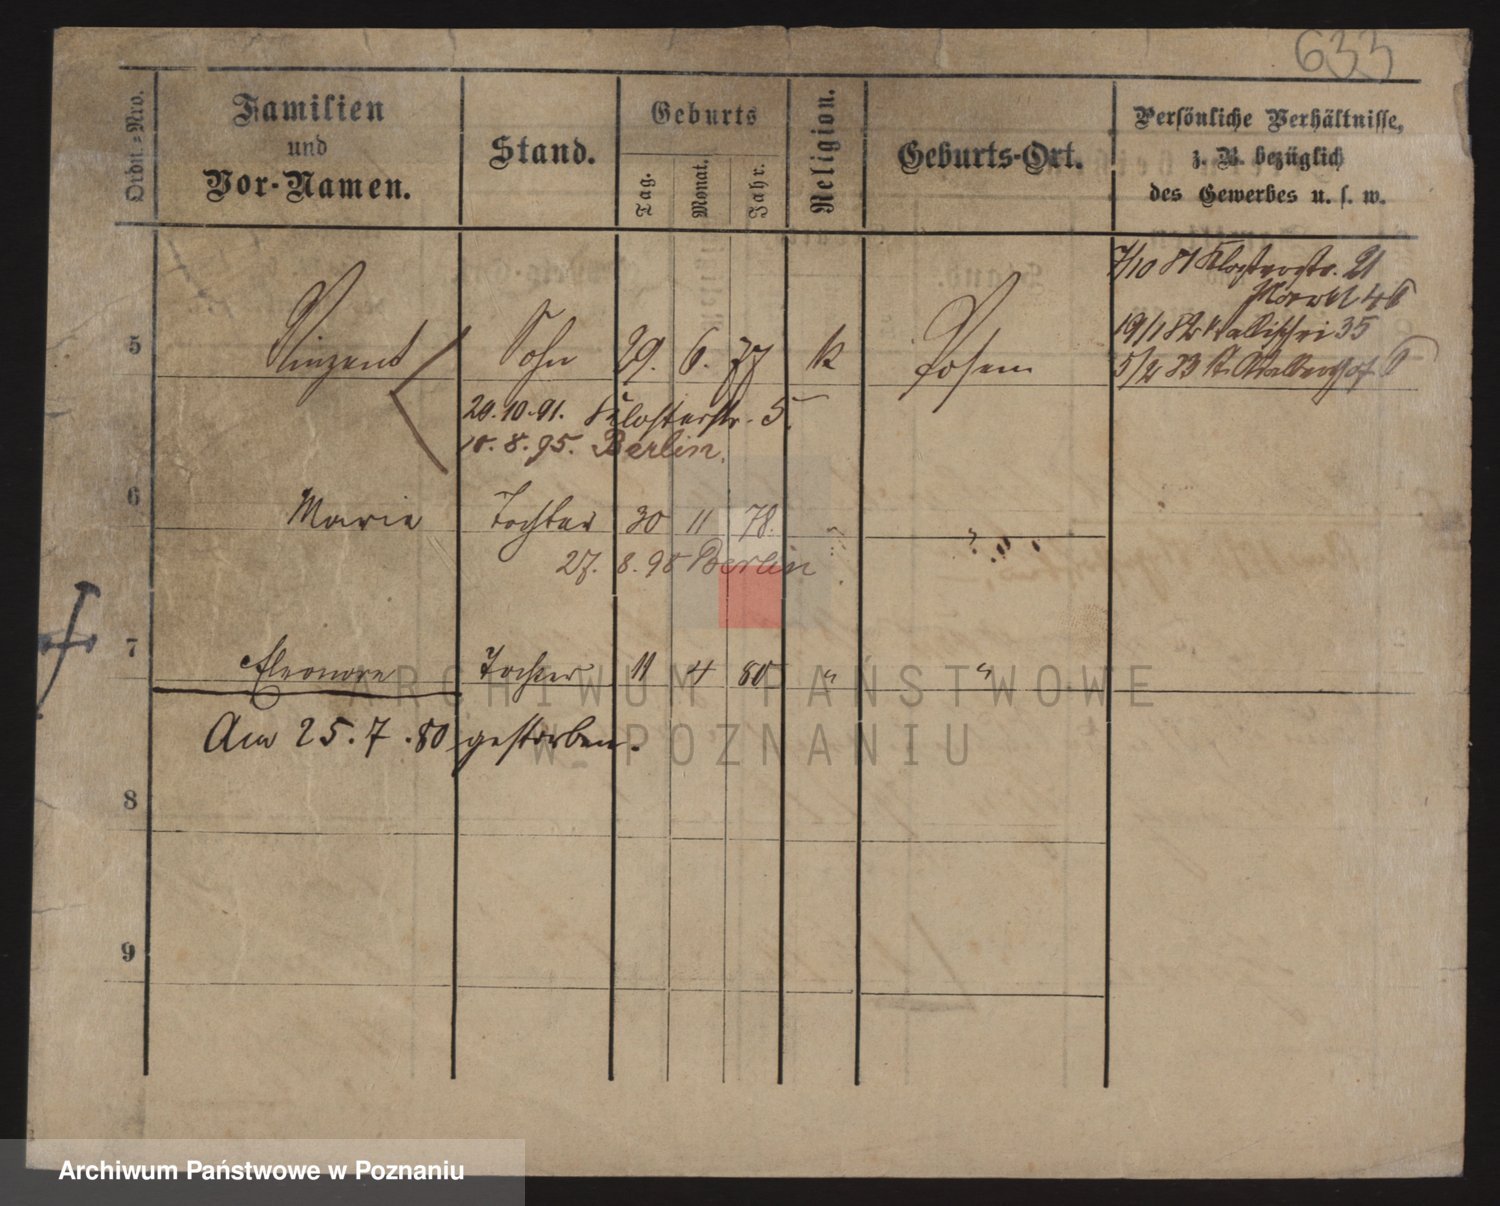 633
Ordn.-Nro.
Familien
und
Vor-Namen.
Stand.
Geburts
Tag.
Monat.
Jahr.
Religion.
Geburts-Ort.
Persönliche Verhältnisse,
z. B. bezüglich
des Gewerbes u. s. w.
7/10 81 Klosterstr. 21
Markt 46
19/1 82 Wallischei 35
5/2 83 St. Adalbert 6
5 Vinzent Sohn 29. 6. 77 k Posen
20.10.91. Klosterstr. 5.
10.8.95. Berlin.
6 Marie Tochter 30 11 78. " "
27. 8. 98 Berlin
7 Eleonore Tochter 11 4 80 " "
Am 25.7.80 gestorben.
8
9
ARCHIWUM PAŃSTWOWE
W POZNANIU
Archiwum Państwowe w Poznaniu